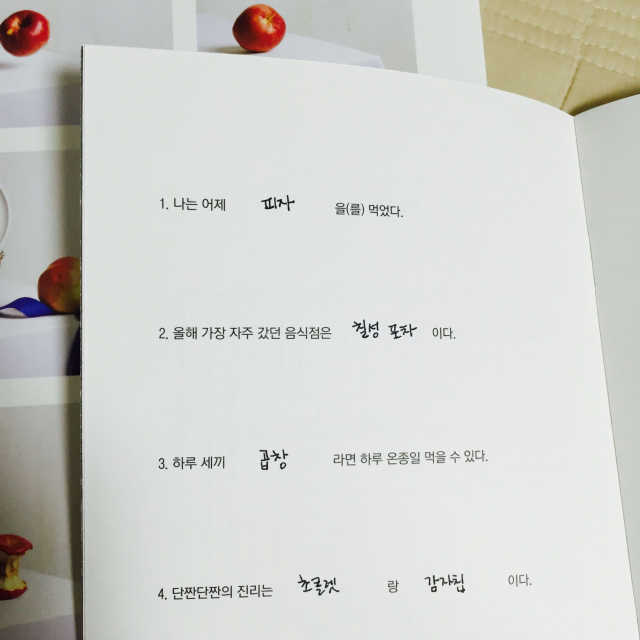 1. 나는 어제 피자 을(를) 먹었다.
2. 올해 가장 자주 갔던 음식점은 칠성 포차 이다.
3. 하루 세끼 곱창 라면 하루 온종일 먹을 수 있다.
4. 단짠단짠의 진리는 초콜렛 랑 감자칩 이다.